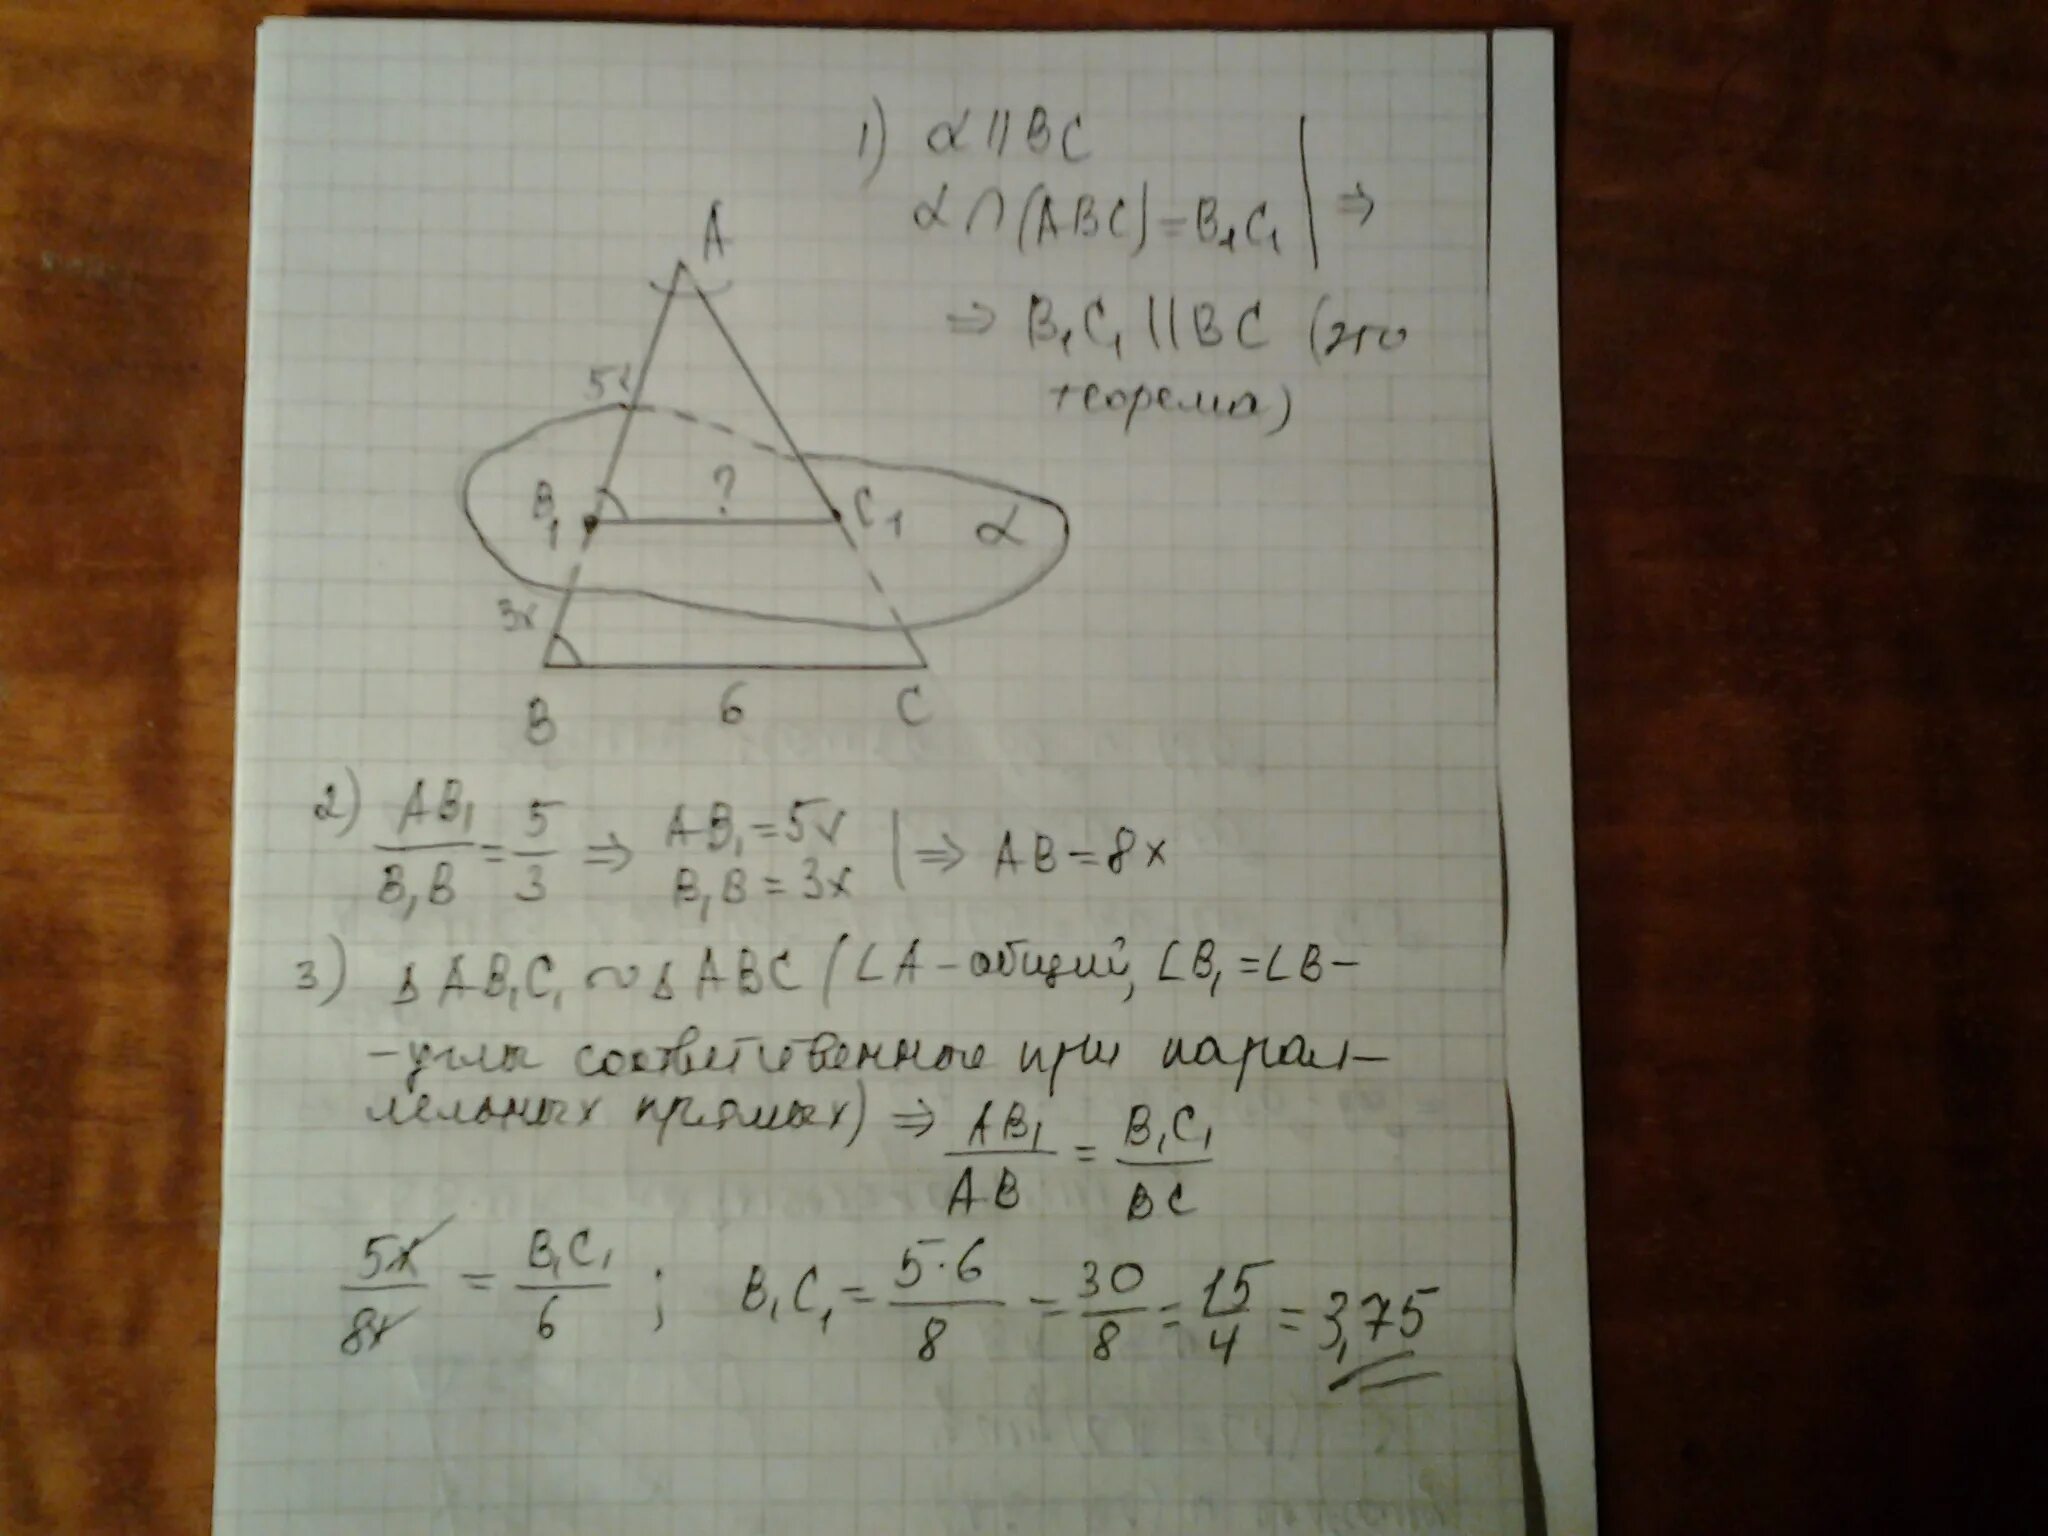 1) α || BC
α ∩ (ABC) = B₁C₁ | ⇒
⇒ B₁C₁ || BC (это
теорема)
A
5x
B₁
?
C₁
α
3x
B
6
C
2) AB₁/B₁B = 5/3 ⇒ AB₁ = 5x
B₁B = 3x | ⇒ AB = 8x
3) Δ AB₁C₁ ~ Δ ABC (∠A - общий, ∠B₁ = ∠B -
- углы соответственные при парал-
лельных прямых) ⇒ AB₁/AB = B₁C₁/BC
5x/8x = B₁C₁/6 ; B₁C₁ = 5·6/8 = 30/8 = 15/4 = 3,75